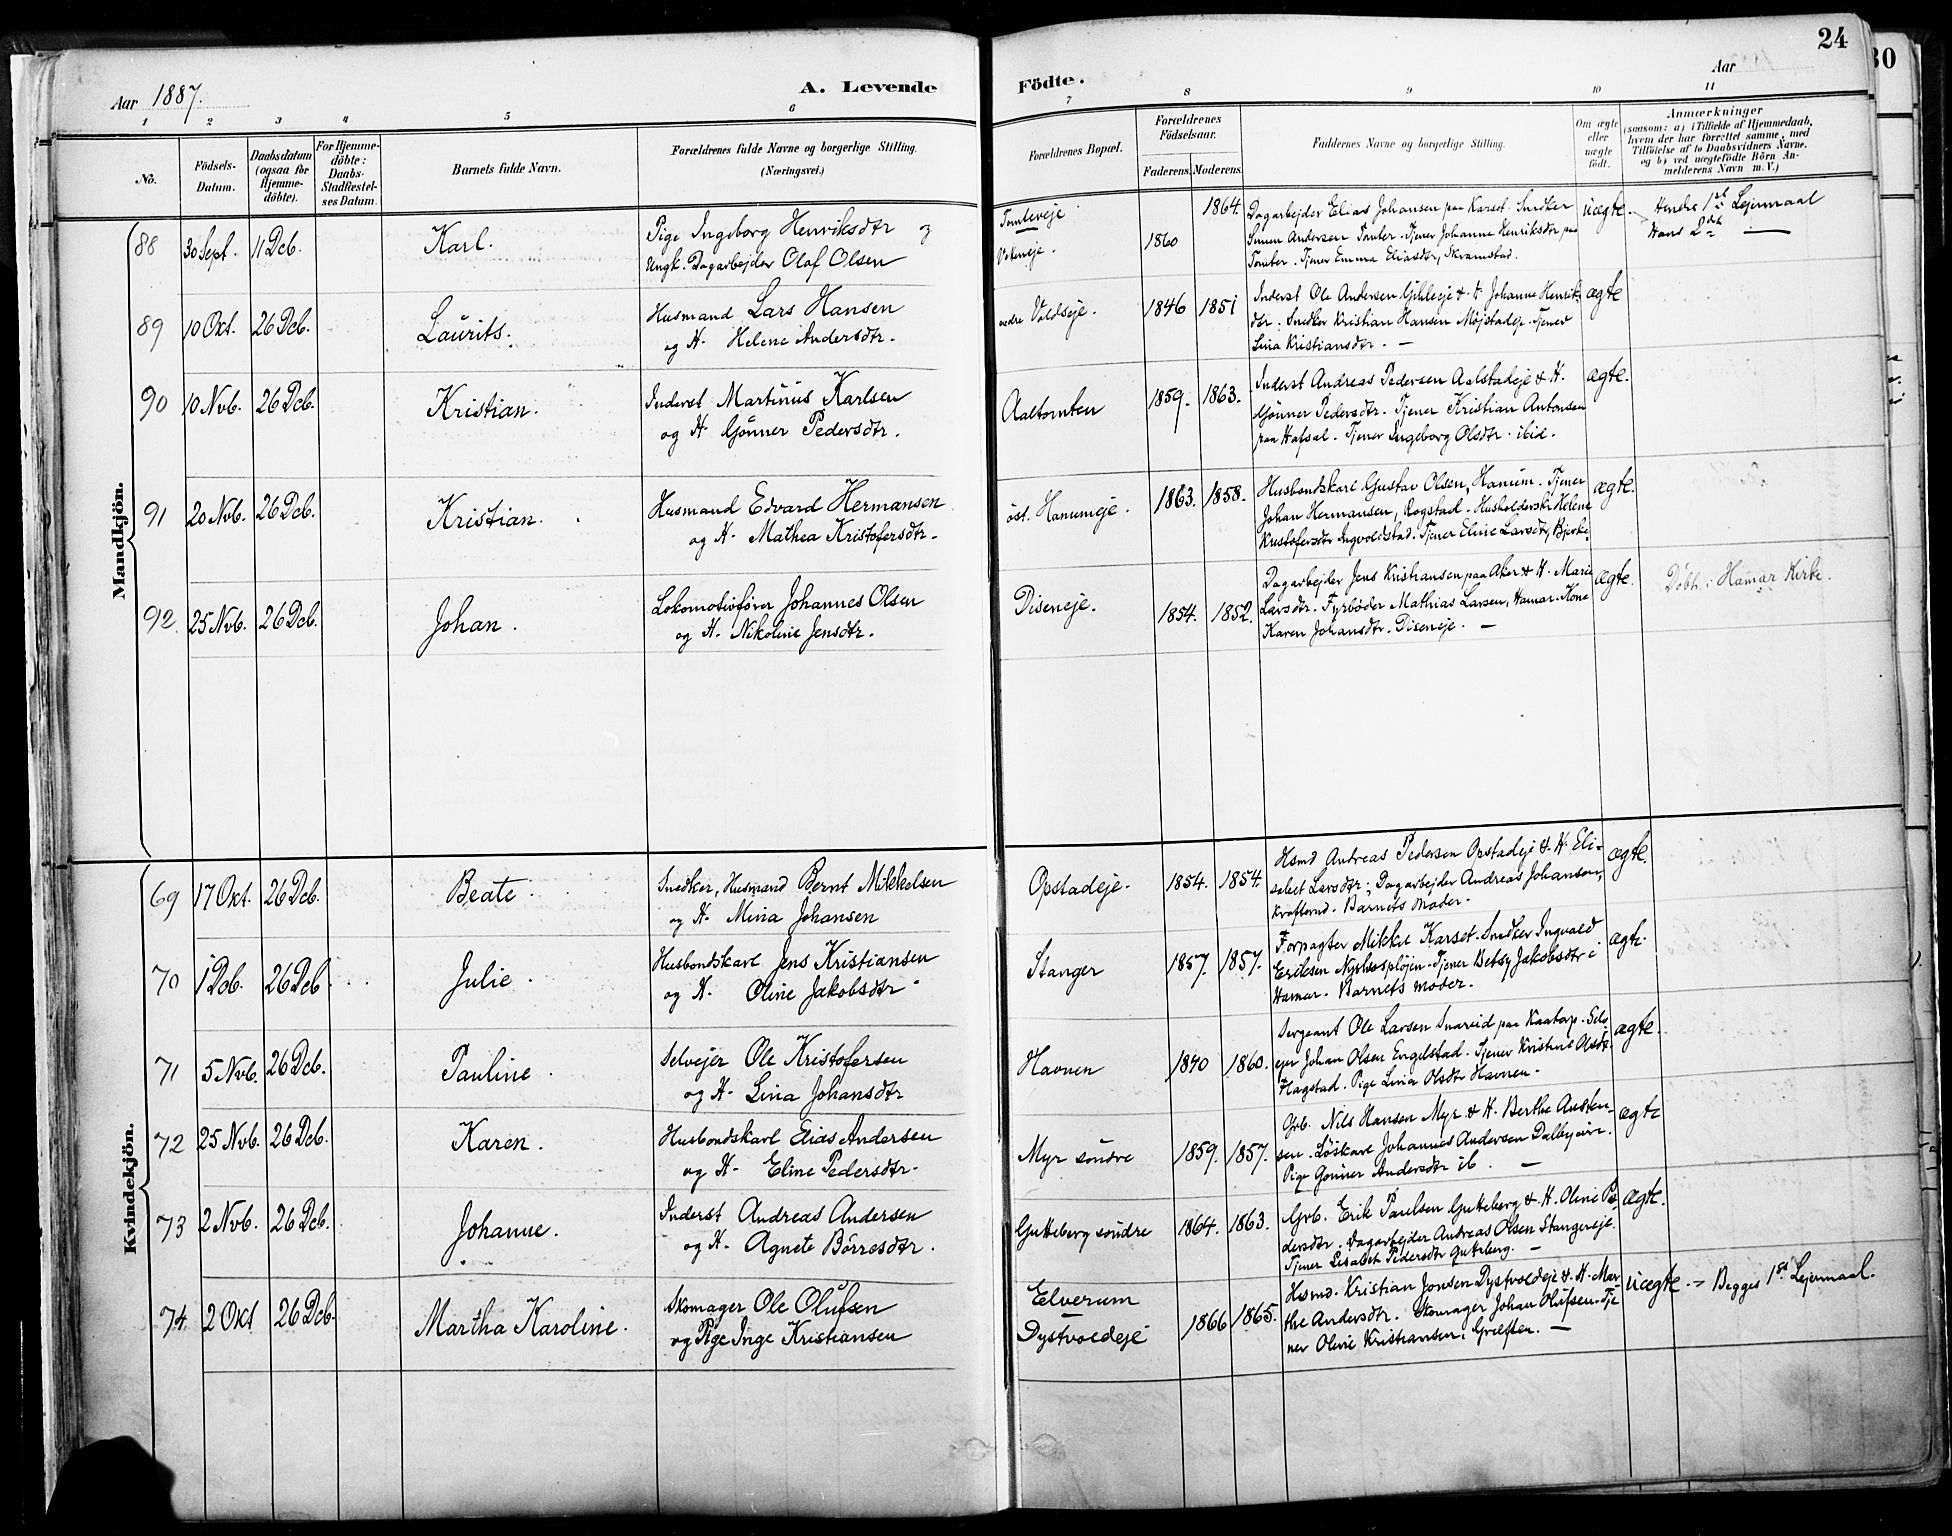 24
30
Aar 1887.
A. Levende
Födte.
Aar
1 2 3 4 5 6 7 8 9 10 11
No.
Födsels-
Datum.
Daabsdatum
(ogsaa for
Hjemme-
döbte).
For Hjemme-
döbte:
Daabs-
Stadfæstel-
ses Datum.
Barnets fulde Navn.
Forældrenes fulde Navne og borgerlige Stilling.
(Næringsvei.)
Forældrenes Bopæl.
Forældrenes
Födselsaar.
Faderens. Moderens.
Faddernes Navne og borgerlige Stilling.
Om ægte
eller
uægte
födt.
Anmærkninger
(saasom: a) i Tilfælde af Hjemmedaab,
hvem der har forrettet samme, med
Tilföielse af to Daabsvidners Navne.
og b) ved uægtefödte Börn An-
melderens Navn m. V.)
Mandkjön.
88 30 Sept. 11 Dcb. Karl.
Pige Ingeborg Henriksdtr og
Ungk. Dagarbejder Olaf Olsen
Tomleveje
1860 1864.
Dagarbejder Elias Johansen paa Karset. Snedker
Simen Andersen Tomter. Tjener Johanne Henriksdtr paa
Tomter. Tjener Emma Eliasdtr, Skramstad.
uægte.
Hendes 1ste Lejermaal
Hans 2det —
89 10 Okt. 26 Dcb. Laurits.
Husmand Lars Hansen
og H. Helene Andersdtr.
nedre Voldseje. 1846 1851
Inderst Ole Andersen Gihleeje & H. Johanne Henriks-
dtr: Snedker Kristian Hansen Mojstadeje. Tjener
Lina Kristiansdtr. —
ægte
90 10 Nvb. 26 Dcb. Kristian.
Inderst Martinus Karlsen
og H. Gönner Pedersdtr.
Aaltomten 1859. 1863.
Inderst Andreas Pedersen Aalstadeje & H.
Gönner Pedersdtr. Tjener Kristian Antonsen
paa Hafsal. Tjener Ingeborg Olsdtr. ibid.
ægte.
91 20 Nvb. 26 Dcb. Kristian.
Husmand Edvard Hermansen
og H. Mathea Kristofersdtr.
öst. Hanumeje. 1863. 1858.
Husbondskarl Gustav Olsen, Hanum. Tjener
Johan Hermansen, Rogstad. Husholderske Helene
Kristofersdtr Ingvoldstad. Tjener Eline Larsdtr, Bjerke.
ægte.
92. 25 Nvb. 26 Dcb. Johan.
Lokomotivförer Johannes Olsen
og H. Nikoline Jensdtr.
Diseneje. 1854. 1852.
Dagarbejder Jens Kristiansen paa Aker & H. Marie
Larsdtr. Fyrböder Mathias Larsen, Hamar. Kone
Karen Johansdtr. Diseneje. —
ægte.
Döbt i Hamar Kirke.
Kvindekjön.
69 17 Okt. 26 Dcb. Beate
Snedker, Husmand Bernt Mikkelsen
og H. Mina Johansen
Opstadeje. 1854. 1854.
Hsmd Andreas Pedersen Opstadeje & H. Eli-
sabet Larsdtr; Dagarbejder Andreas Johansen,
Barnets Moder.
ægte.
70 1 Dcb. 26 Dcb. Julie.
Husbondskarl Jens Kristiansen
og H. Oline Jakobsdtr.
Stanger 1857. 1857.
Forpagter Mikkel Karset. Snedker Ingvald
Eriksen Tjener Betsy Jakobsdtr i
Hamar. Barnets Moder.
ægte.
71 5 Nvb. 26 Dcb. Pauline.
Selvejer Ole Kristofersen
og H. Lina Johansdtr
Havnen 1840 1860.
Sergeant Ole Larsen Snareid paa Kaatorp. Selv-
ejer Johan Olsen Engelstad. Tjener Kristine Olsdtr
Hagstad. Pige Lina Olsdtr Havnen.
ægte.
72 25 Nvb. 26 Dcb. Karen.
Husbondskarl Elias Andersen
og H. Eline Pedersdtr.
Myr söndre 1859. 1857.
Grb. Nils Hansen Myr & H. Berthe Austen-
sen. Löskarl Johannes Andersen Dalbyeie.
Pige Gönner Andersdtr ib. —
ægte
73 2 Nvb. 26 Dcb. Johanne.
Inderst Andreas Andersen
og H. Agnete Börresdtr.
Gutteberg söndre 1864. 1863.
Grb. Erik Paulsen Gutteberg & H. Oline Pe-
dersdtr. Dagarbejder Andreas Olsen Stangereje.
Tjener Lisabet Pedersdtr Gutteberg. —
ægte.
74. 2 Okt 26 Dcb. Martha Karoline.
Skomager Ole Olufsen
og Pige Inge Kristiansen
Elverum
Dystvoldeje 1866 1865.
Hsmd. Kristian Jonsen Dystvoldeje & H. Mar-
the Andersdtr. Skomager Johan Olufsen. Tje
ner Olivie Kristiansen, Græften. —
uægte.
Begges 1ste Lejermaal.